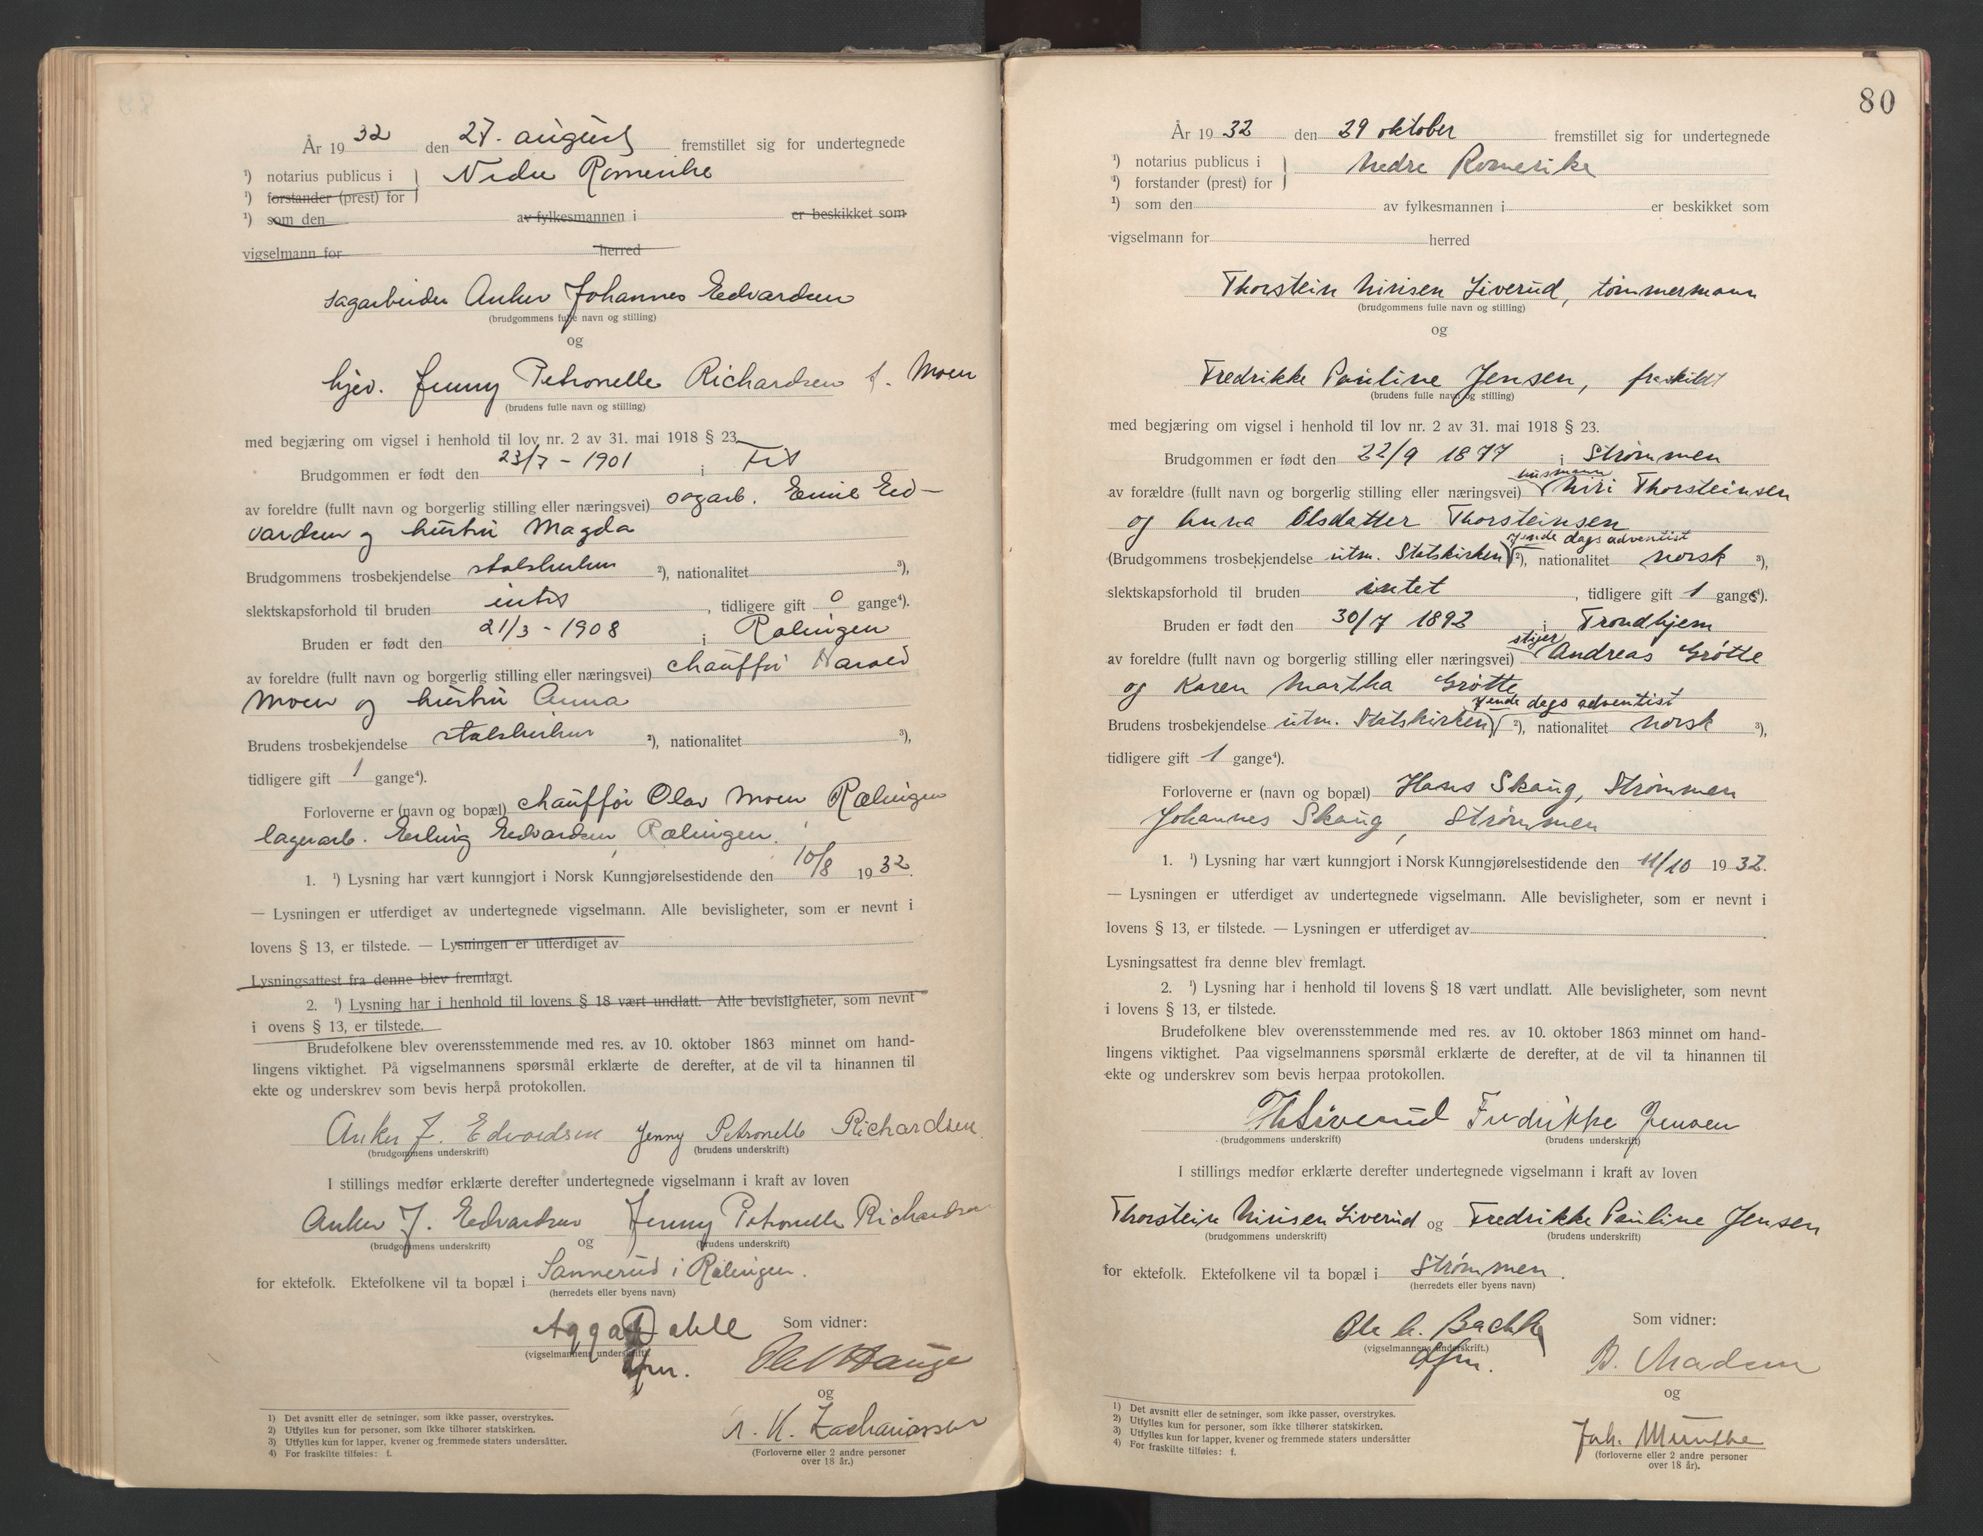 År 1932 den 27. august fremstillet sig for undertegnede
¹) notarius publicus i } Nedre Romerike
¹) forstander (prest) for
¹) som den av fylkesmannen i er beskikket som
vigselmann for herred
sagarbeider Anker Johannes Edvardsen
(brudgommens fulle navn og stilling)
og
hjev. Jenny Petronelle Richardsen f. Moen
(brudens fulle navn og stilling)
med begjæring om vigsel i henhold til lov nr. 2 av 31. mai 1918 § 23.
Brudgommen er født den 23/7 - 1901 i Fet
av foreldre (fullt navn og borgerlig stilling eller næringsvei) sagarb. Emil Ed-
vardsen og hustru Magda
Brudgommens trosbekjendelse statskirken ²), nationalitet ³),
slektskapsforhold til bruden intet, tidligere gift 0 gange⁴).
Bruden er født den 21/3 - 1908 i Rælingen
av foreldre (fullt navn og borgerlig stilling eller næringsvei) chauffør Harald
Moen og hustru Anna
Brudens trosbekjendelse statskirken ²), nationalitet ³),
tidligere gift 1 gange⁴).
Forloverne er (navn og bopæl) chauffør Olav Moen Rælingen
lagerarb. Erling Edvardsen, Rælingen.
1. ¹) Lysning har vært kunngjort i Norsk Kunngjørelsestidende den 10/8 1932.
— Lysningen er utferdiget av undertegnede vigselmann. Alle bevisligheter, som er nevnt i
lovens § 13, er tilstede. — Lysningen er utferdiget av
Lysningsattest fra denne blev fremlagt.
2. ¹) Lysning har i henhold til lovens § 18 vært undlatt. Alle bevisligheter, som nevnt
i ovens § 13, er tilstede.
Brudefolkene blev overensstemmende med res. av 10. oktober 1863 minnet om hand-
lingens viktighet. På vigselmannens spørsmål erklærte de derefter, at de vil ta hinannen til
ekte og underskrev som bevis herpå protokollen.
Anker J. Edvardsen Jenny Petronelle Richardsen.
(brudgommens underskrift) (brudens underskrift)
I stillings medfør erklærte derefter undertegnede vigselmann i kraft av loven
Anker J. Edvardsen og Jenny Petronelle Richardsen
(brudgommens underskrift) (brudens underskrift)
for ektefolk. Ektefolkene vil ta bopæl i Sannerud i Rælingen.
(herredets eller byens navn)
Agga Dahle Som vidner:
(vigselmannens underskrift)
dfm. Olaf Hauge
og
A. K. Zachariassen
(Forloverne eller 2 andre personer
over 18 år.)
1) Det avsnitt eller de setninger, som ikke passer, overstrykes.
2) Utfylles kun for personer, som ikke tilhører statskirken.
3) Utfylles kun for lapper, kvener og fremmede staters undersåtter.
4) For fraskilte tilføies: f.
80
År 1932 den 29 oktober fremstillet sig for undertegnede
¹) notarius publicus i } Nedre Romerike
¹) forstander (prest) for
¹) som den av fylkesmannen i er beskikket som
vigselmann for herred
Thorstein Nirisen Liverud, tømmermann
(brudgommens fulle navn og stilling)
og
Fredrikke Pauline Jensen, fraskildt
(brudens fulle navn og stilling)
med begjæring om vigsel i henhold til lov nr. 2 av 31. mai 1918 § 23.
Brudgommen er født den 22/9 1877 i Strømmen
husmann
av forældre (fullt navn og borgerlig stilling eller næringsvei) Niri Thorsteinsen
og Anna Olsdatter Thorsteinsen
syvende dags adventist
(Brudgommens trosbekjendelse utm. Statskirken ²), nationalitet norsk ³),
slektskapsforhold til bruden intet, tidligere gift 1 gange⁴).
Bruden er født den 30/7 1892 i Trondhjem
stiger
av foreldre (fullt navn og borgerlig stilling eller næringsvei) Andreas Grøtte
og Karen Martha Grøtte
syvende dags adventist
Brudens trosbekjendelse utm. Statskirken ²), nationalitet norsk ³),
tidligere gift 1 gange⁴).
Forloverne er (navn og bopæl) Hans Skaug, Strømmen
Johannes Skaug, Strømmen
1. ¹) Lysning har vært kunngjort i Norsk Kunngjørelsestidende den 11/10 1932.
— Lysningen er utferdiget av undertegnede vigselmann. Alle bevisligheter, som er nevnt i
lovens § 13, er tilstede. — Lysningen er utferdiget av
Lysningsattest fra denne blev fremlagt.
2. ¹) Lysning har i henhold til lovens § 18 vært undlatt. Alle bevisligheter, som nevnt
i lovens § 13, er tilstede.
Brudefolkene blev overensstemmende med res. av 10. oktober 1863 minnet om hand-
lingens viktighet. Paa vigselmannens spørsmål erklærte de derefter, at de vil ta hinannen til
ekte og underskrev som bevis herpaa protokollen.
Th Liverud Fredrikke Jensen
(brudgommens underskrift) (brudens underskrift)
I stillings medfør erklærte derefter undertegnede vigselmann i kraft av loven
Thorstein Nirisen Liverud og Fredrikke Pauline Jensen
(brudgommens underskrift) (brudens underskrift)
for ektefolk. Ektefolkene vil ta bopæl i Strømmen.
(herredets eller byens navn)
Ole A. Bachke Som vidner:
(vigselmannens underskrift.)
dfm. B. Madsen
og
Joh. Munthe
(forloverne eller 2 andre personer
over 18 år).
1) Det avsnitt eller de setninger, som ikke passer, overstrykes.
2) Utfylles kun for personer, som ikke tilhører statskirken.
3) Utfylles kun for lapper, kvener og fremmede staters undersåtter
4) For fraskilte tilføies: f.